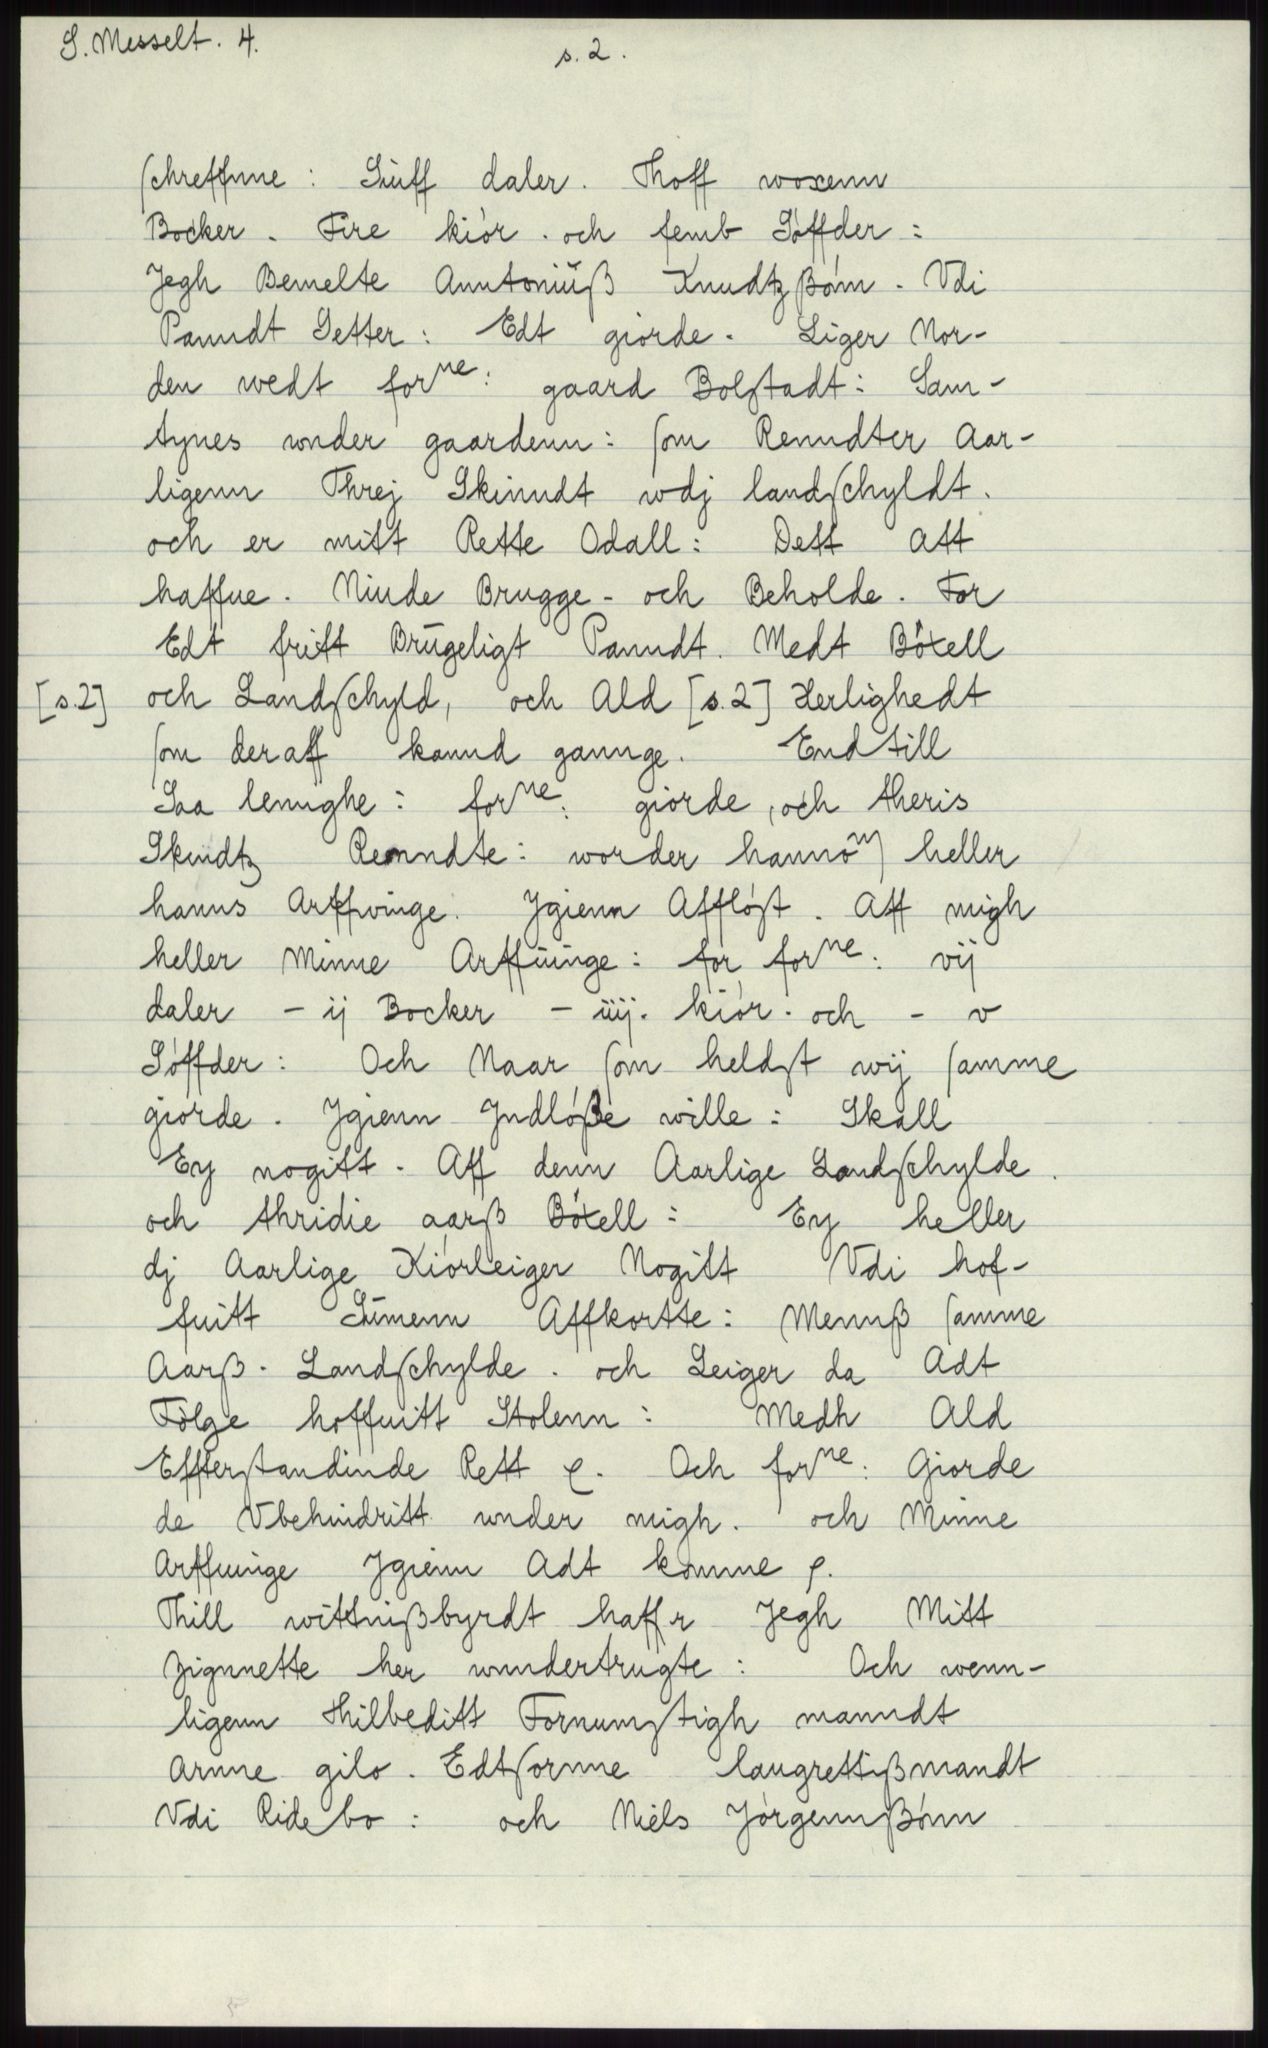 S. Messelt. 4.
s. 2.
schreffnne: Siuff daler. Thoff woxenn
Bocker. Fire kiór. och femb Sóffder:
Jegh Bemelte Anntoniuß Knudtzßónn. Vdi
Panndt Setter: Edt giorde. Liger Nor-
den wedt forne: gaard Bolstadt: Sam-
tynes wnder gaardenn: som Renndter Aar-
ligenn Threj Skinndt wdj landschyldt.
och er mitt Rette Odall: Dett Att
haffue. Niude Brugge - och Beholde. For
Edt fritt Brugeligt Panndt. Medt Bóxell
[s.2] och Landschyld, och Ald [s.2] Herlighedt
som deraff kannd gannge. End till
Saa lennghe: forne: giorde, och theris
Skindtz Renndte: worder hannóm heller
hanns Arffvinge. Ygienn Afflóst. Aff migh
heller Minne Arffuinge: for forne: vij
daler - ij Bocker - iiij. kiór. och - v
Sóffder: Och Naar som heldst wij samme
giorde. Ygienn Indlóße wille: Skall
Ey nogitt. Aff denn Aarlige Landschylde.
och thridie aarß Bóxell: Ey heller
dj Aarlige Kiórleiger Nogitt Vdi hof-
fuitt Sumenn Affkortte: Mennß samme
Aarß. Landschylde. och Leiger da Adt
Fólge hoffuitt Stolenn: Medh Ald
Effterstandinde Rett ϱ. Och forne: Giorde
de Vbehindritt wnder migh. och Minne
Arffuinge Ygienn Adt komme ϱ.
Thill wittnißbyrdt haffr Jegh Mitt
Zignnette her wnndertrugte: Och wenn-
ligenn thilbeditt Fornumstigh manndt
Arnne gilo. Edtsornne laugrettißmandt
Vdi Ridebo: och Niels Jórgennßónn